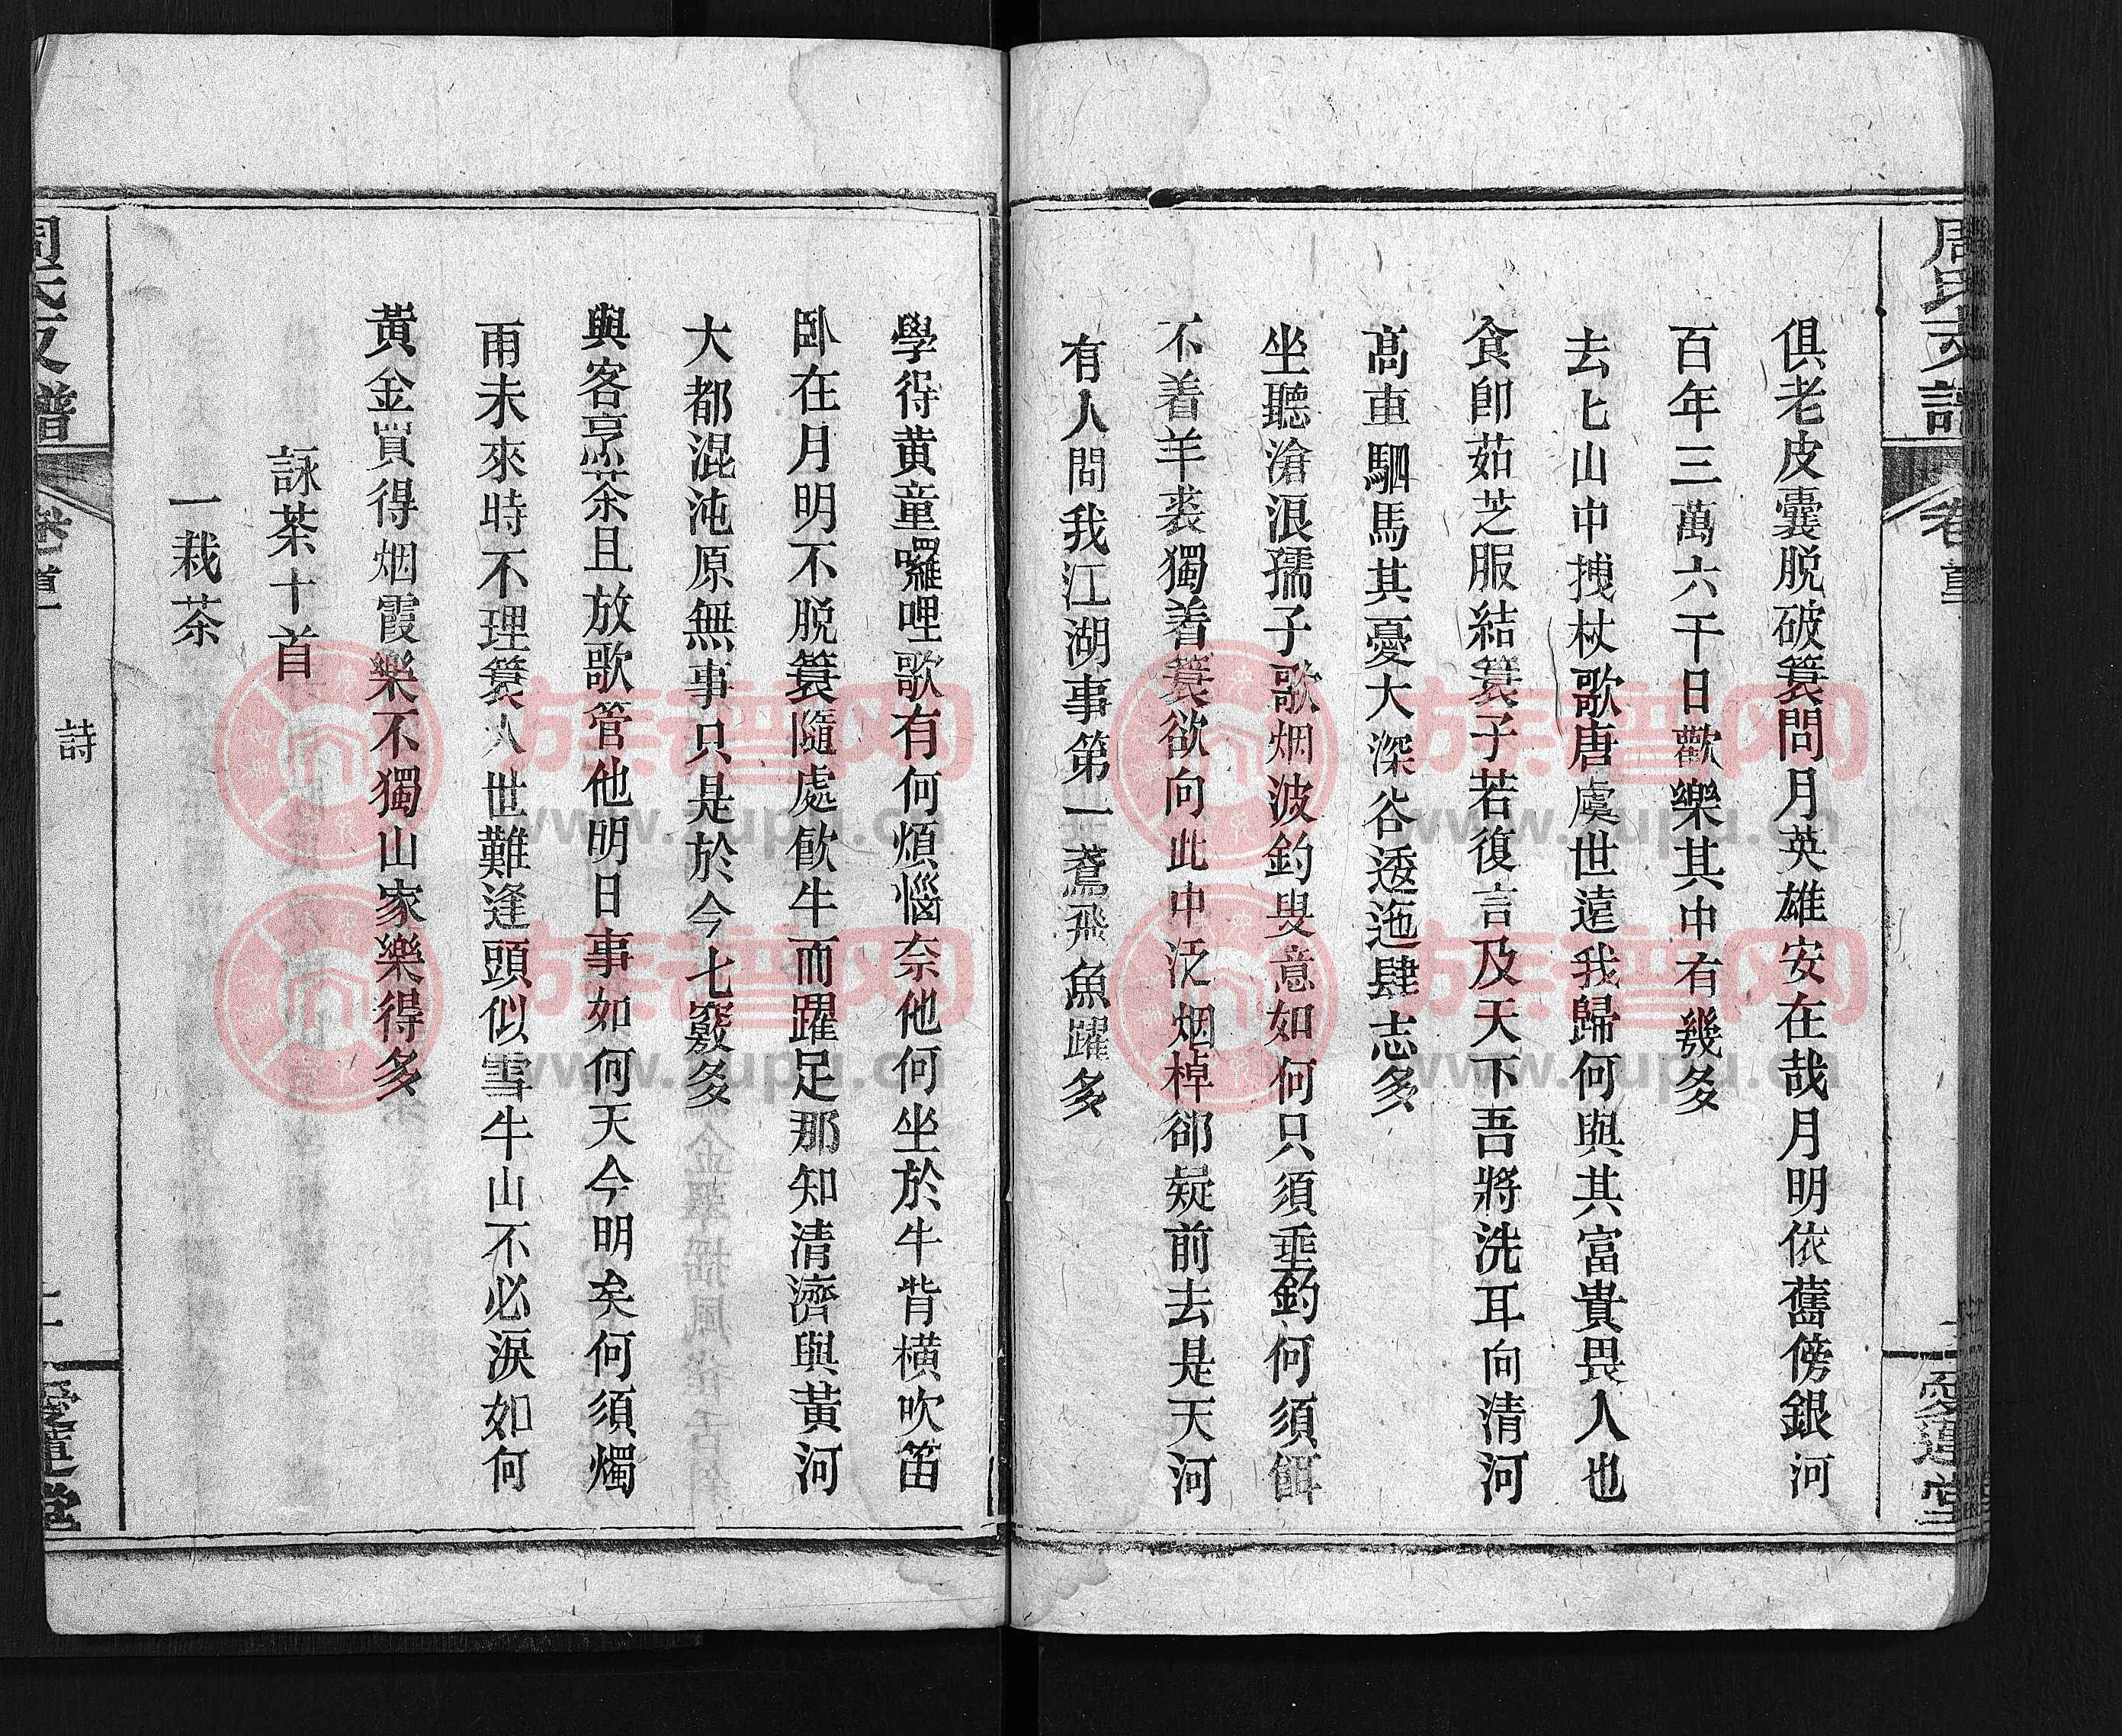 周氏支譜
卷首
愛蓮堂
俱老皮囊脫破簑問月英雄安在哉月明依舊傍銀河
百年三萬六千日歡樂其中有幾多
去匕山中拽杖歌唐虞世遠我歸何與其富貴畏人也
食卽茹芝服結簑子若復言及天下吾將洗耳向清河
高車駟馬其憂大深谷逶迤肆志多
坐聽滄浪孺子歌烟波釣叟意如何只須垂釣何須餌
不着羊裘獨着簑欲向此中泛烟棹卻疑前去是天河
有人問我江湖事第一鳶飛魚躍多
學得黃童囉哩歌有何煩惱奈他何坐於牛背橫吹笛
臥在月明不脫簑隨處飲牛而躍足那知清濟與黃河
大都混沌原無事只是於今七竅多
與客烹茶且放歌管他明日事如何天今明矣何須燭
雨未來時不理簑人世難逢頭似雪牛山不必淚如何
黃金買得烟霞樂不獨山家樂得多
詠茶十首
一栽茶
周氏支譜
卷首
詩
愛蓮堂
族谱网
www.zupu.cn
族谱网
www.zupu.cn
族谱网
www.zupu.cn
族谱网
www.zupu.cn